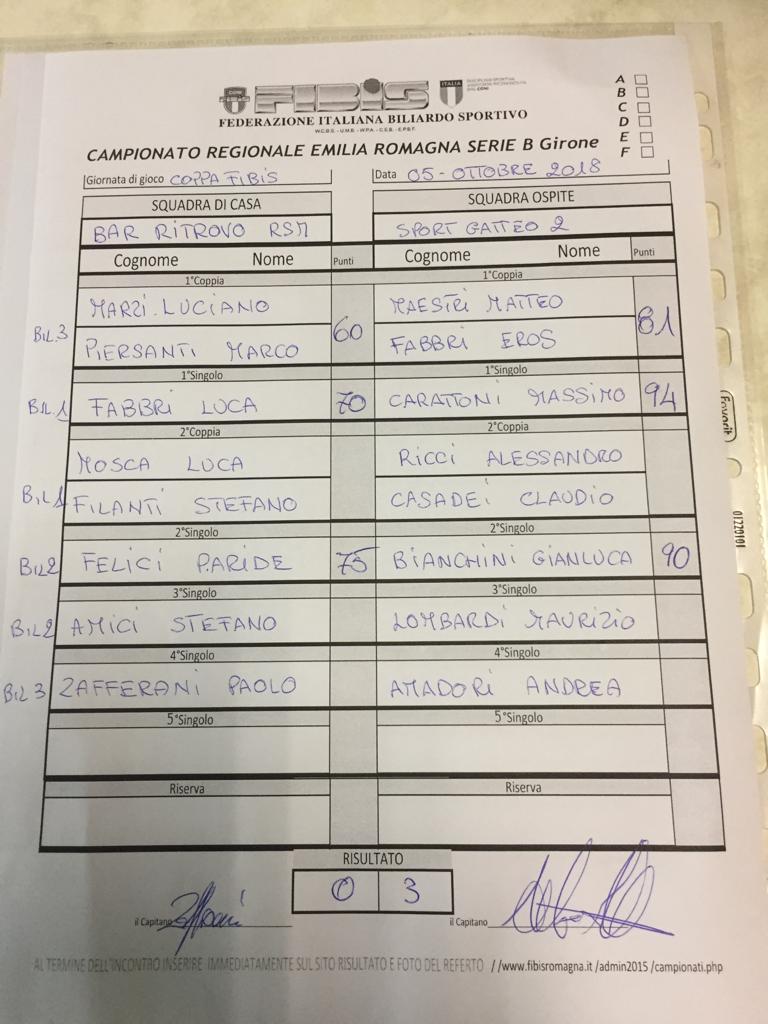 FIBIS
ITALIA
FEDERAZIONE ITALIANA BILIARDO SPORTIVO
W.C.B.S. - U.M.B. - W.P.A. - C.E.B. - E.P.B.F.
A
B
C
D
E
F
CAMPIONATO REGIONALE EMILIA ROMAGNA SERIE B Girone
Giornata di gioco COPPA FIBIS Data 05-OTTOBRE 2018
SQUADRA DI CASA SQUADRA OSPITE
BAR RITROVO RSM SPORT GATTEO 2
Cognome Nome Punti Cognome Nome Punti
1°Coppia 1°Coppia
MARZI LUCIANO MAESTRI MATTEO
BIL.3 60 81
PIERSANTI MARCO FABBRI EROS
1°Singolo 1°Singolo
BIL.1 FABBRI LUCA 70 CARATTONI MASSIMO 94
2°Coppia 2°Coppia
MOSCA LUCA RICCI ALESSANDRO
BIL1 FILANTI STEFANO CASADEI CLAUDIO
2°Singolo 2°Singolo
BIL2 FELICI PARIDE 75 BIANCHINI GIANLUCA 90
3°Singolo 3°Singolo
BIL2 AMICI STEFANO LOMBARDI MAURIZIO
4°Singolo 4°Singolo
BIL 3 ZAFFERANI PAOLO AMADORI ANDREA
5°Singolo 5°Singolo
Riserva Riserva
RISULTATO
0 3
il Capitano il Capitano
AL TERMINE DELL'INCONTRO INSERIRE IMMEDIATAMENTE SUL SITO RISULTATO E FOTO DEL REFERTO //www.fibisromagna.it /admin2015 /campionati.php
Favorit
01220101